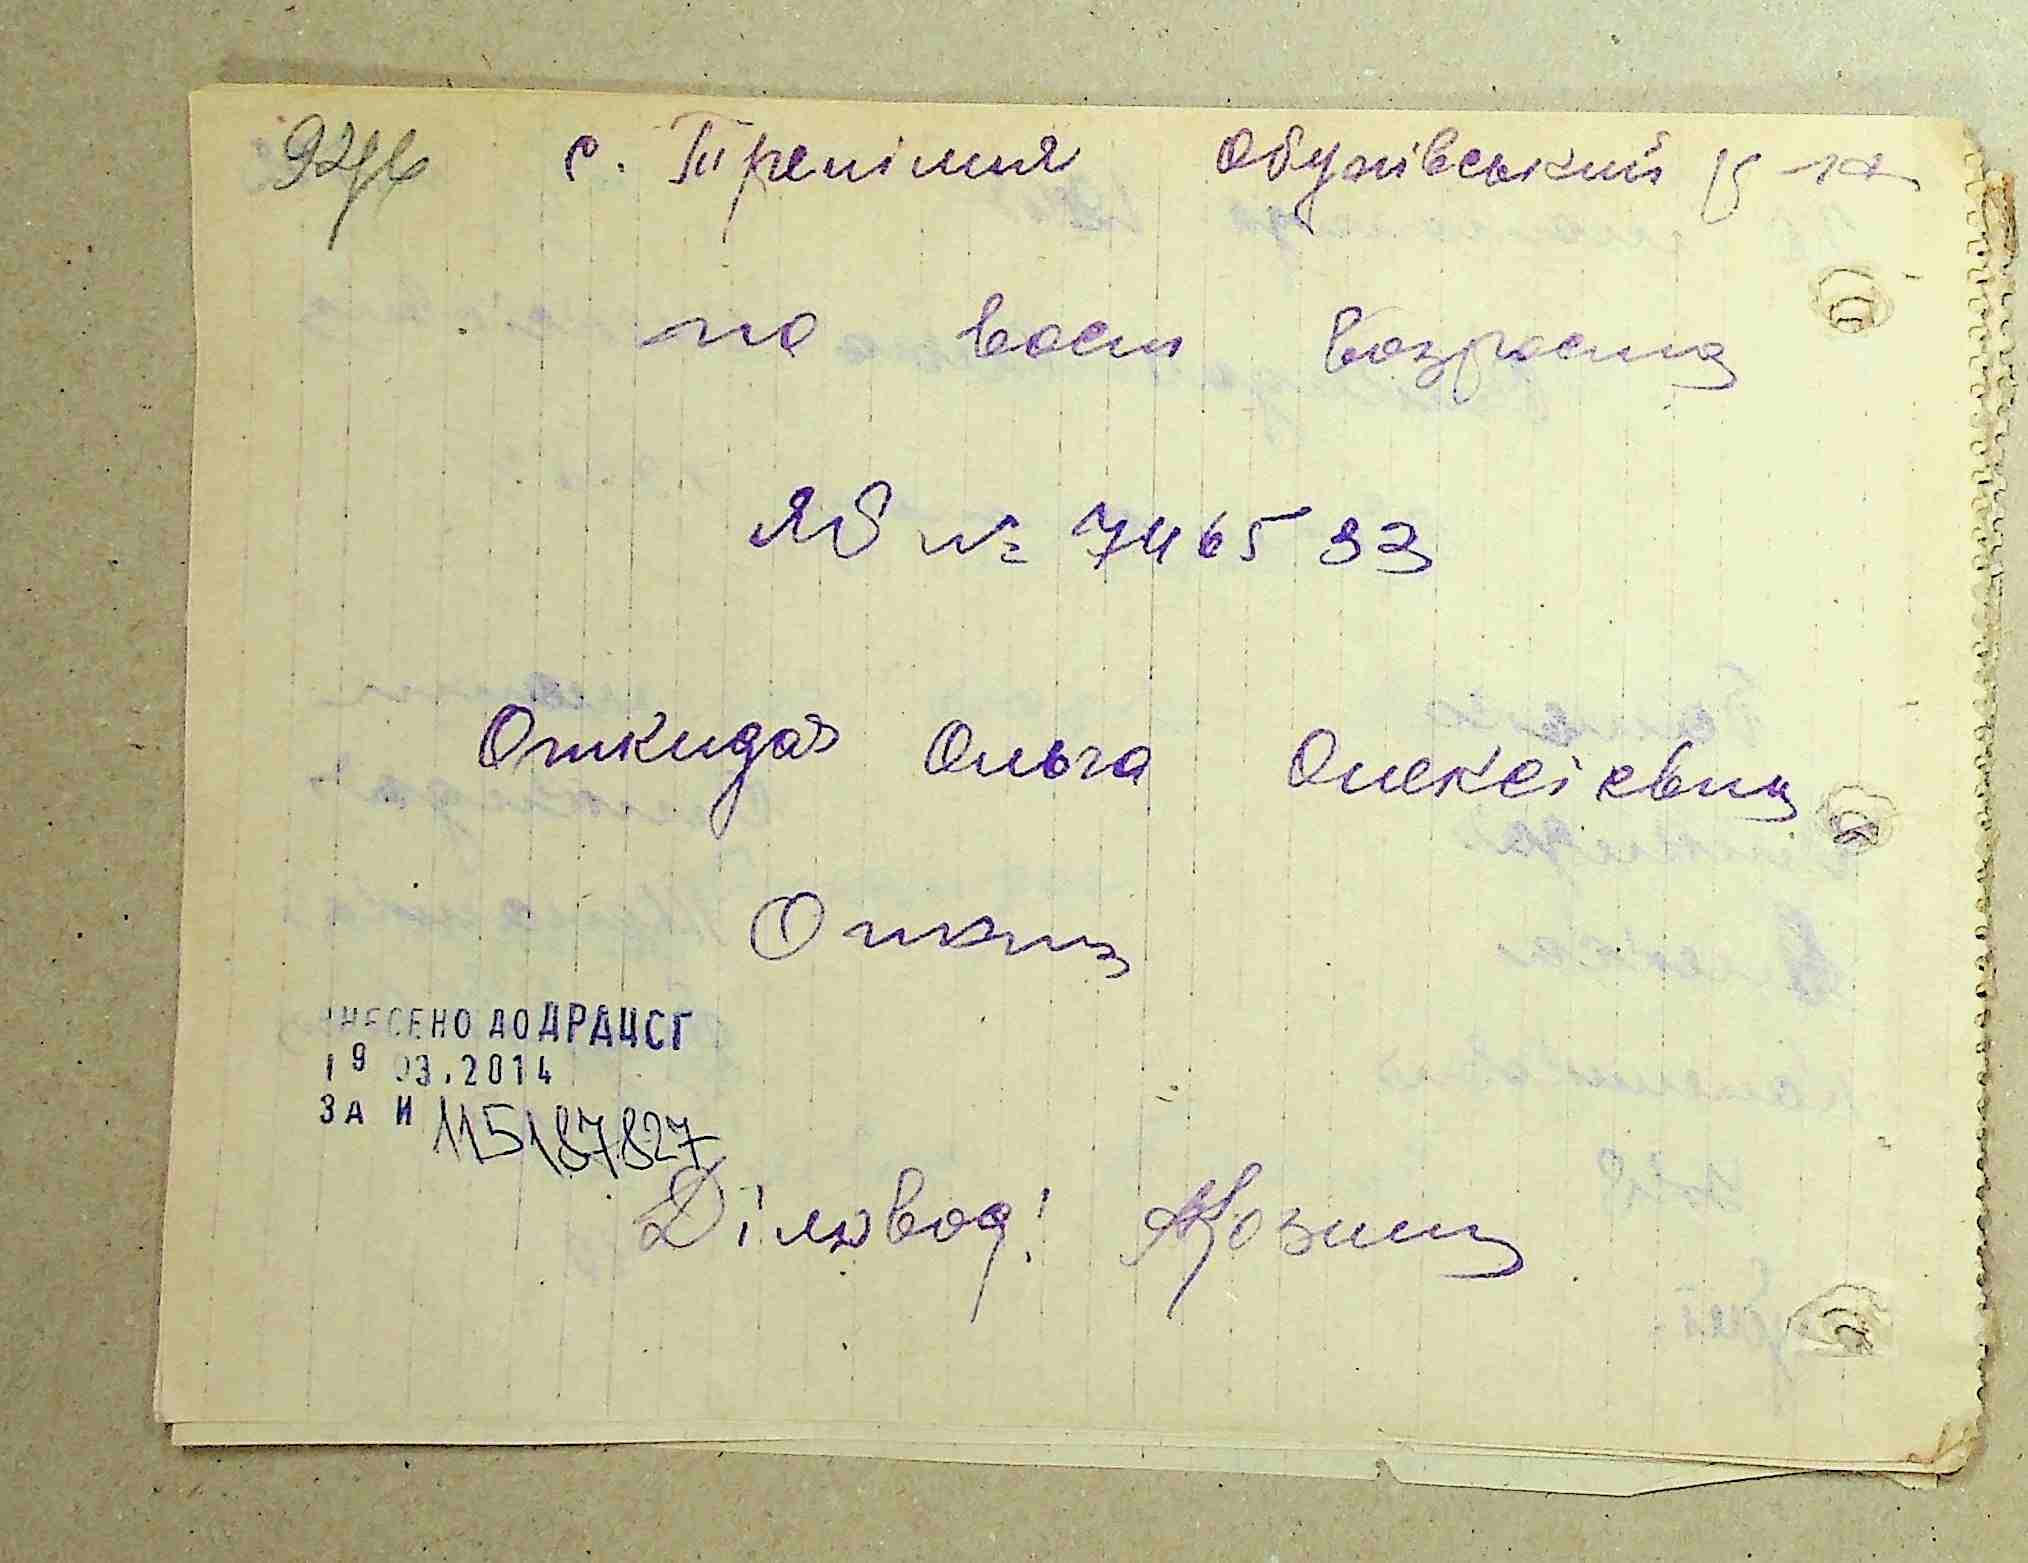 с. Трепілля Обухівський р-н
по восп возраста
ЯБ № 746593
Откидач Ольга Олексіевна
ВНЕСЕНО ДО ДРАЦСГ
19 03.2014
ЗА N 115187827
Діловод: